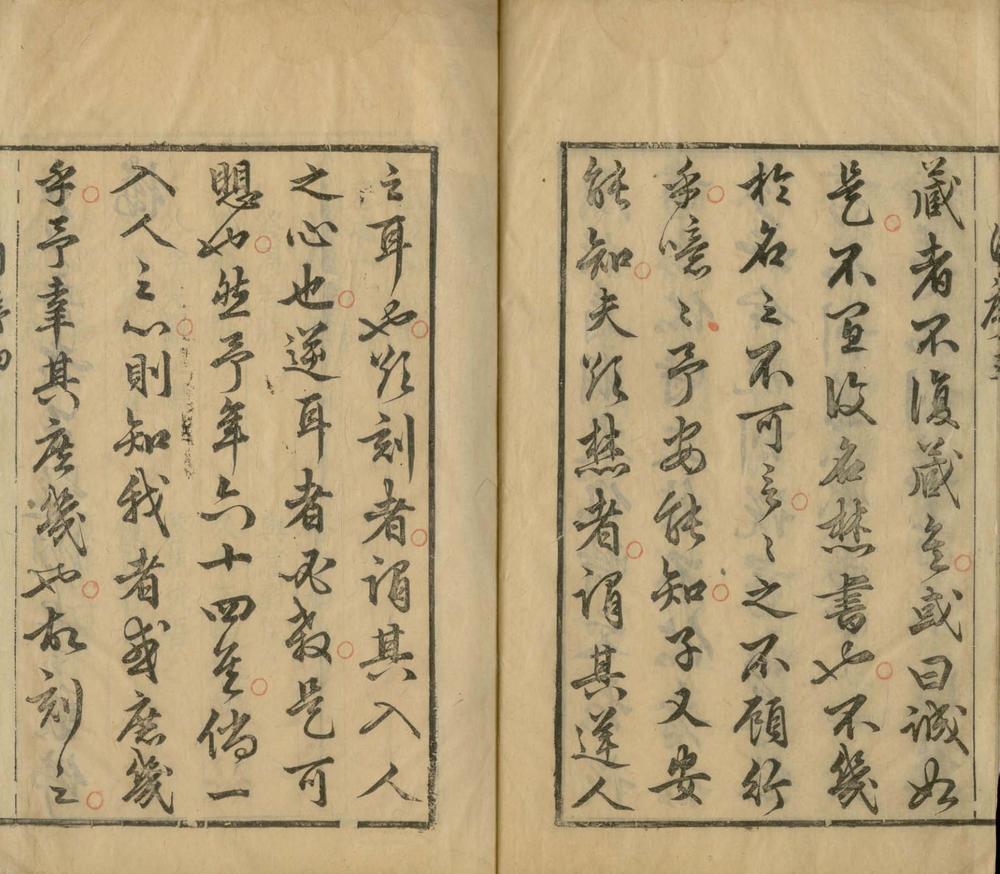 藏者不復藏矣或曰誠如
是不宜復名焚書也不幾
於名之不可言〻之不顧行
乎噫〻予安能知子又安
能知夫欲焚者謂其逆人
之耳也欲刻者謂其入人
之心也逆耳者必殺是可
懼也然予年六十四矣倘一
入人之心則知我者或庶幾
乎予幸其庶幾也故刻之